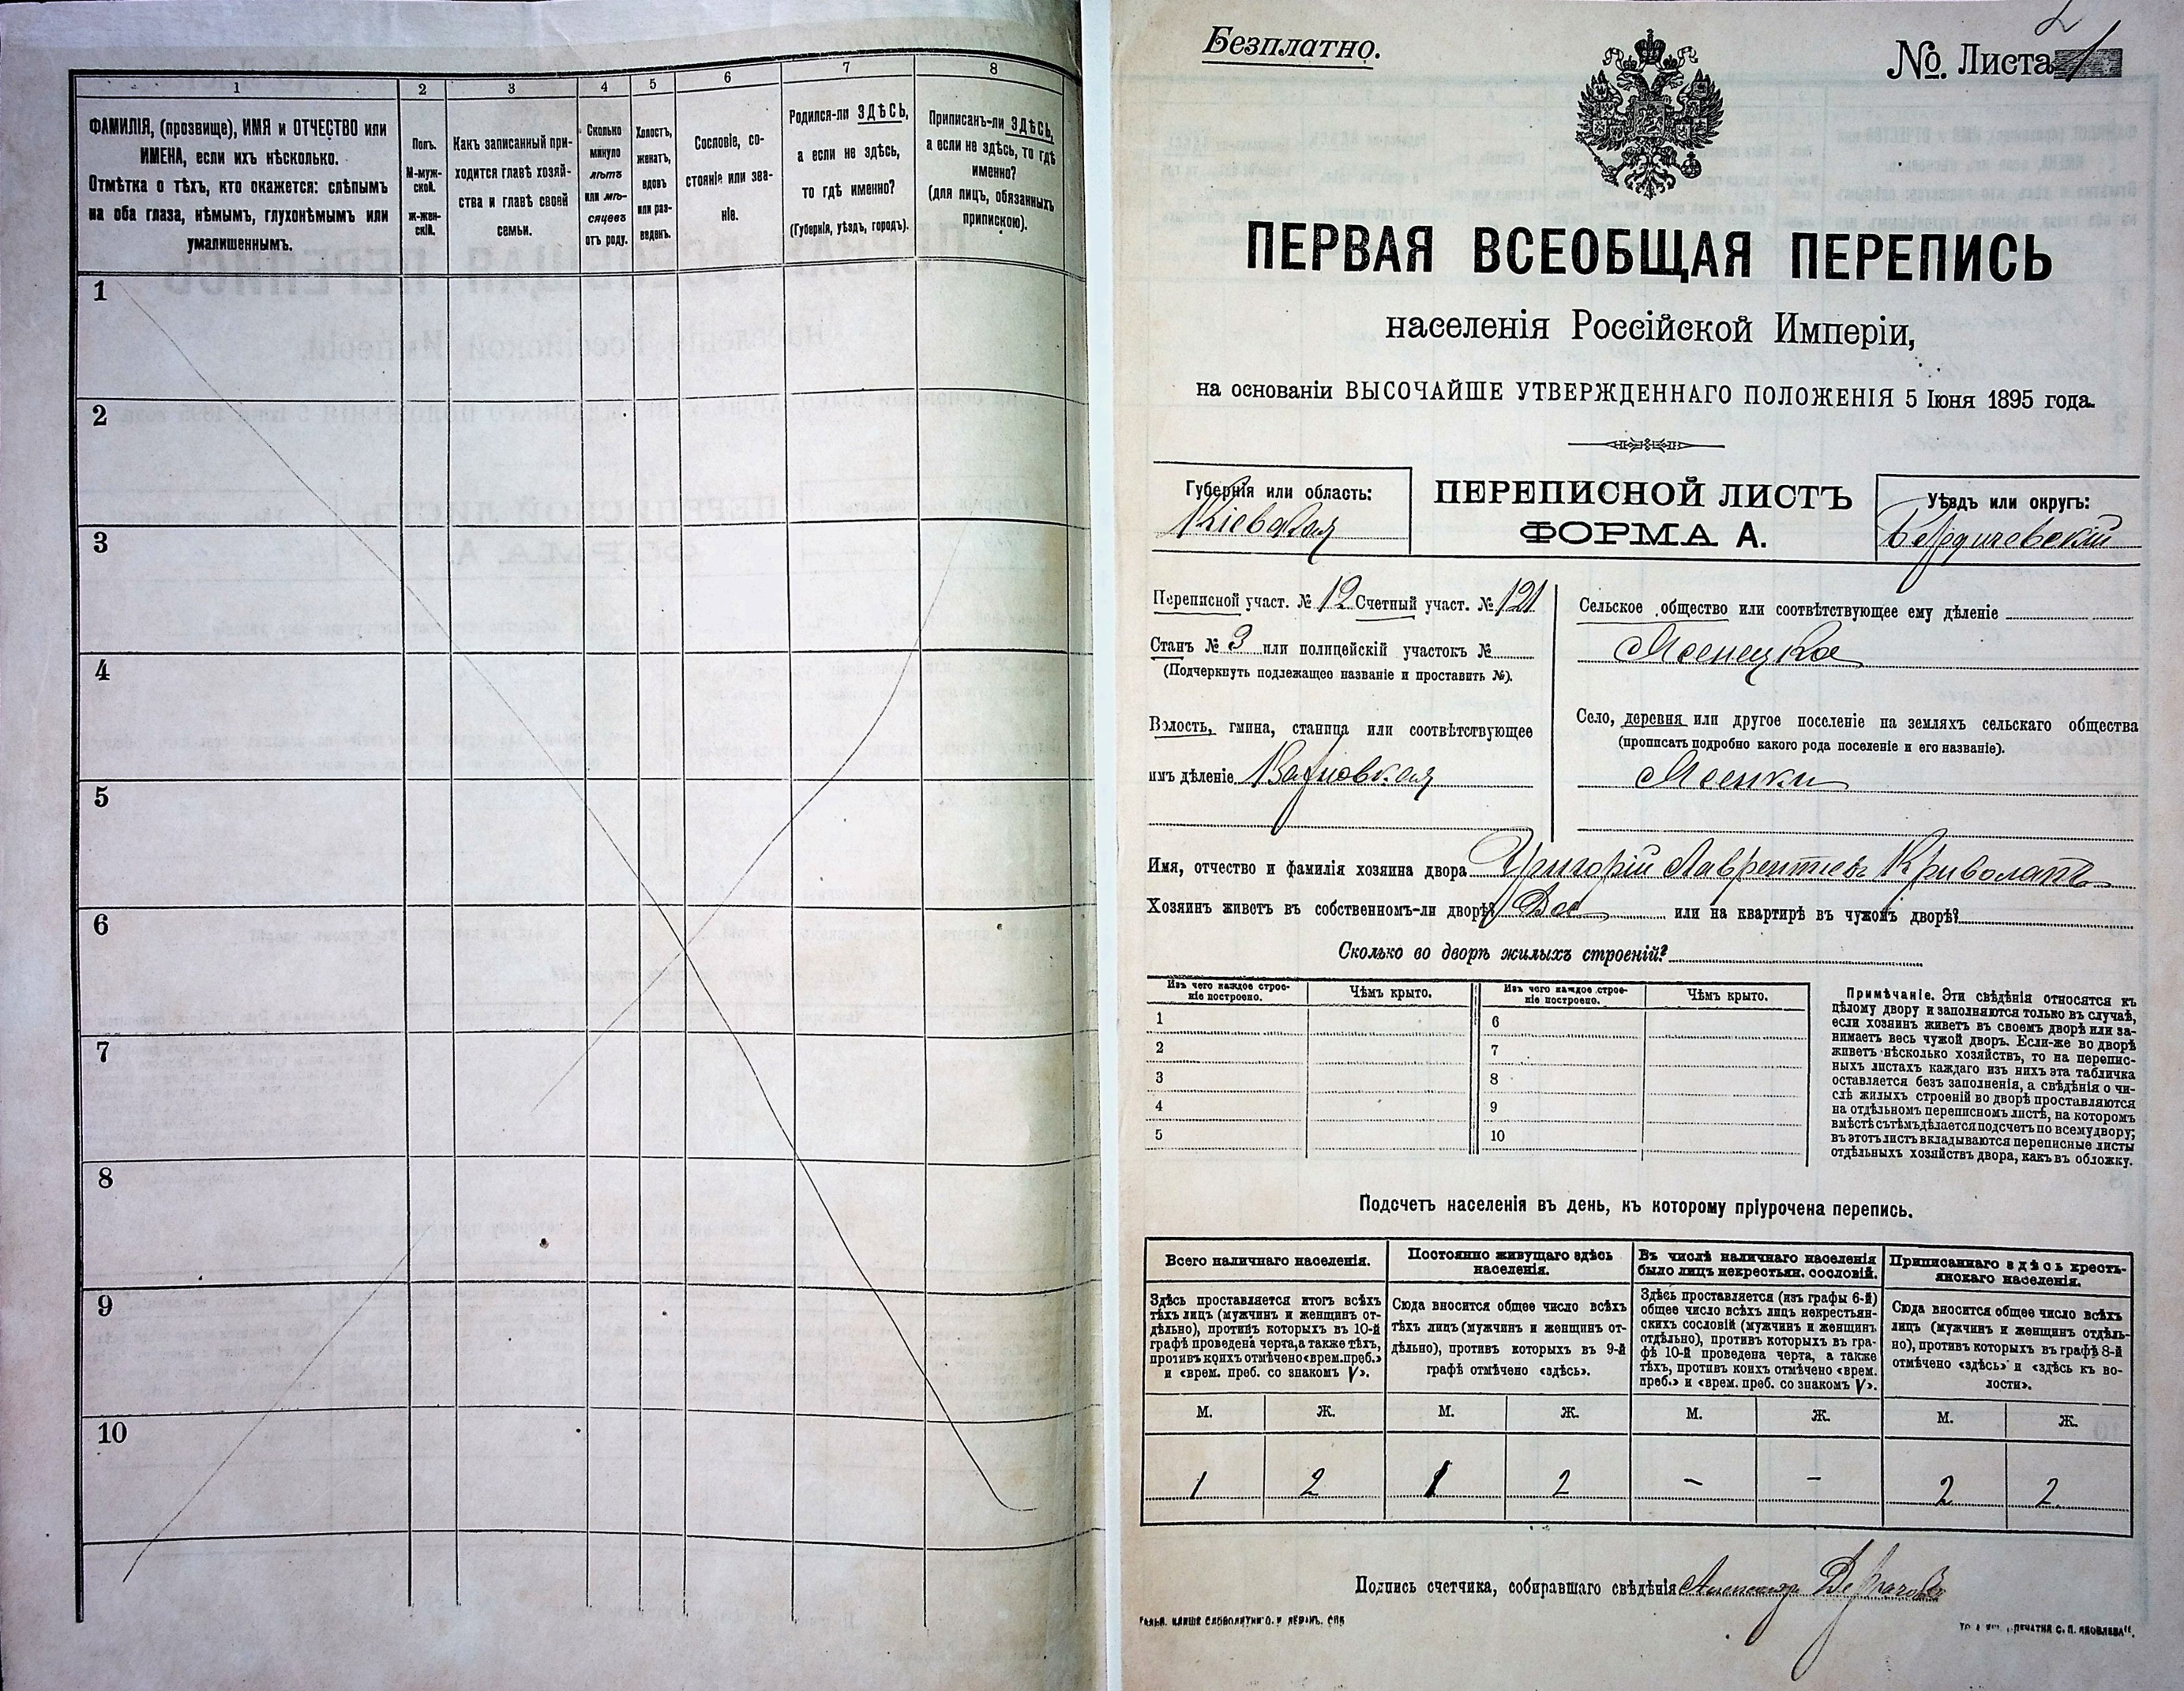 1 2 3 4 5 6 7 8
ФАМИЛІЯ, (прозвище), ИМЯ и ОТЧЕСТВО или
ИМЕНА, если ихъ нѣсколько.
Отмѣтка о тѣхъ, кто окажется: слѣпымъ
на оба глаза, нѣмымъ, глухонѣмымъ или
умалишеннымъ.
Полъ.
М-муж-
ской.
ж-жен-
скій.
Какъ записанный при-
ходится главѣ хозяй-
ства и главѣ своей
семьи.
Сколько
минуло
лѣтъ
или мѣ-
сяцевъ
отъ роду.
Холостъ,
женатъ,
вдовъ
или раз-
веденъ.
Сословіе, со-
стояніе или зва-
ніе.
Родился-ли ЗДѢСЬ,
а если не здѣсь,
то гдѣ именно?
(Губернія, уѣздъ, городъ).
Приписанъ-ли ЗДѢСЬ,
а если не здѣсь, то гдѣ
именно?
(для лицъ, обязанныхъ
припискою).
1
2
3
4
5
6
7
8
9
10
Безплатно.
№. Листа 1
2
ПЕРВАЯ ВСЕОБЩАЯ ПЕРЕПИСЬ
населенія Россійской Имперіи,
на основаніи ВЫСОЧАЙШЕ УТВЕРЖДЕННАГО ПОЛОЖЕНІЯ 5 Іюня 1895 года.
Губернія или область:
Кіевская
ПЕРЕПИСНОЙ ЛИСТЪ
ФОРМА А.
Уѣздъ или округъ:
Бердичевскій
Переписной участ. № 12 Счетный участ. № 121
Станъ № 3 или полицейскій участокъ №
(Подчеркнуть подлежащее названіе и проставить №).
Волость, гмина, станица или соотвѣтствующее
имъ дѣленіе
Сельское общество или соотвѣтствующее ему дѣленіе
Ясенецкое
Село, деревня или другое поселеніе на земляхъ сельскаго общества
(прописать подробно какого рода поселеніе и его названіе).
Ясенки
Имя, отчество и фамилія хозяина двора Григорій Лаврентіевъ Криволапъ
Хозяинъ живетъ въ собственномъ-ли дворѣ? или на квартирѣ въ чужомъ дворѣ?
Сколько во дворѣ жилыхъ строеній?
Изъ чего каждое строе-
ніе построено.
Чѣмъ крыто.
Изъ чего каждое строе-
ніе построено.
Чѣмъ крыто.
1 6
2 7
3 8
4 9
5 10
Примѣчаніе. Эти свѣдѣнія относятся къ
цѣлому двору и заполняются только въ случаѣ,
если хозяинъ живетъ въ своемъ дворѣ или за-
нимаетъ весь чужой дворъ. Если-же во дворѣ
живетъ нѣсколько хозяйствъ, то на перепис-
ныхъ листахъ каждаго изъ нихъ эта табличка
оставляется безъ заполненія, а свѣдѣнія о чи-
слѣ жилыхъ строеній во дворѣ проставляются
на отдѣльномъ переписномъ листѣ, на которомъ
вмѣстѣ съ тѣмъ дѣлается подсчетъ по всему двору;
въ этотъ листъ вкладываются переписные листы
отдѣльныхъ хозяйствъ двора, какъ въ обложку.
Подсчетъ населенія въ день, къ которому пріурочена перепись.
Всего наличнаго населенія.
Здѣсь проставляется итогъ всѣхъ
тѣхъ лицъ (мужчинъ и женщинъ от-
дѣльно), противъ которыхъ въ 10-й
графѣ проведена черта, а также тѣхъ,
противъ коихъ отмѣчено «врем. преб.»
и «врем. преб. со знакомъ V».
Постоянно живущаго здѣсь
населенія.
Сюда вносится общее число всѣхъ
тѣхъ лицъ (мужчинъ и женщинъ от-
дѣльно), противъ которыхъ въ 9-й
графѣ отмѣчено «здѣсь».
Въ числѣ наличнаго населенія
было лицъ некрестьян. сословій.
Здѣсь проставляется (изъ графы 6-й)
общее число всѣхъ лицъ некрестьян-
скихъ сословій (мужчинъ и женщинъ
отдѣльно), противъ которыхъ въ гра-
фѣ 10-й проведена черта, а также
тѣхъ, противъ коихъ отмѣчено «врем.
преб.» и «врем. преб. со знакомъ V».
Приписаннаго здѣсь кресть-
янскаго населенія.
Сюда вносится общее число всѣхъ
лицъ (мужчинъ и женщинъ отдѣль-
но), противъ которыхъ въ графѣ 8-й
отмѣчено «здѣсь» и «здѣсь къ во-
лости».
М. Ж. М. Ж. М. Ж. М. Ж.
1 2 1 2 - - 2 2
Подпись счетчика, собиравшаго свѣдѣнія Александр